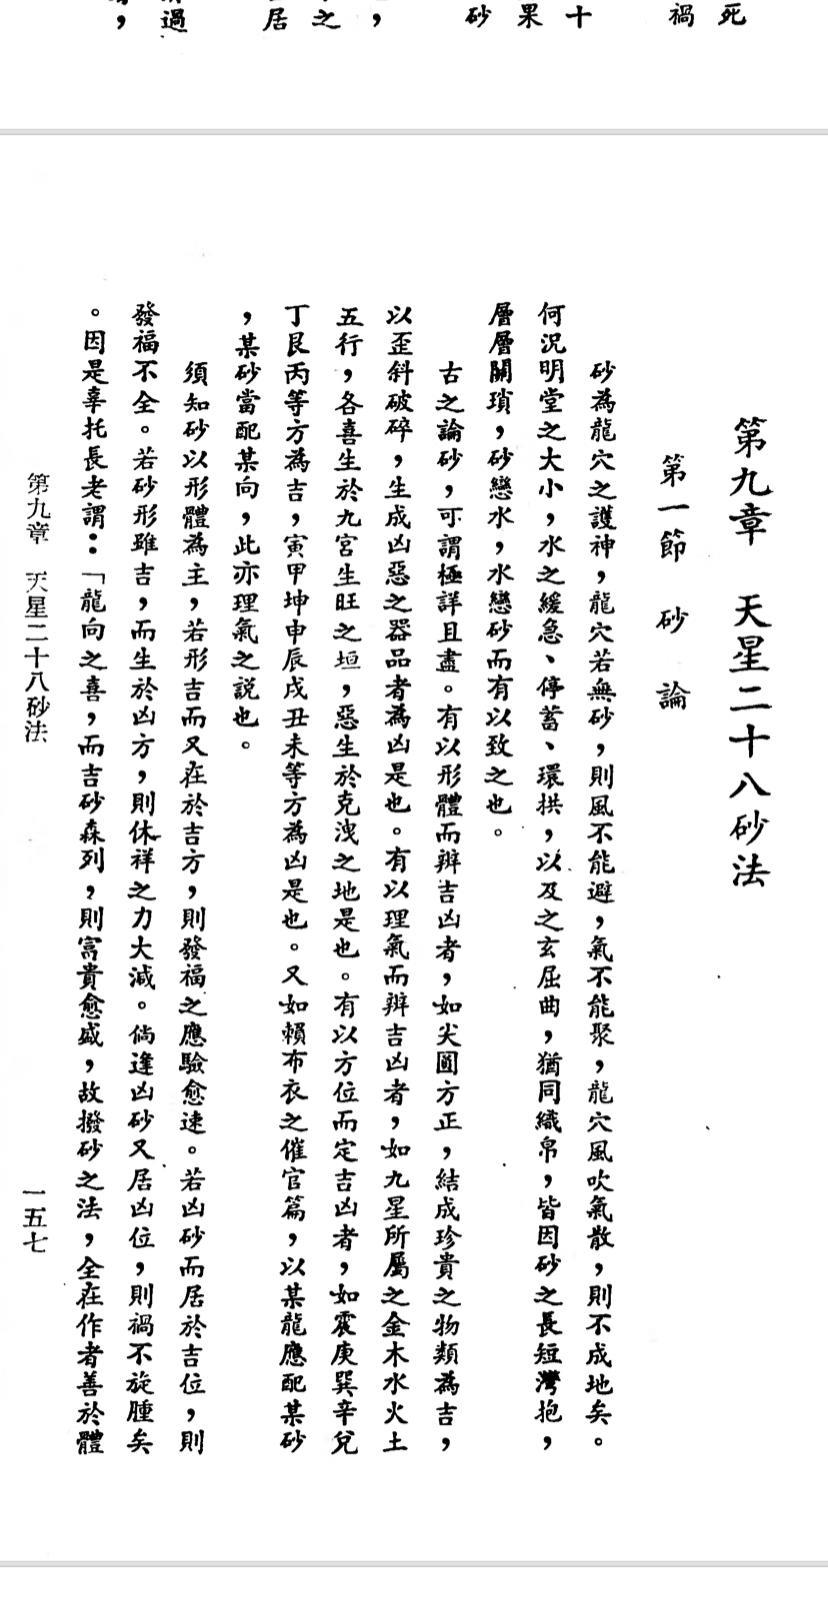 死
禍
十
果
砂
，
之
居
過
，
第九章　天星二十八砂法
第一節　砂　論
砂為龍穴之護神，龍穴若無砂，則風不能避，氣不能聚，龍穴風吹氣散，則不成地矣。
何況明堂之大小，水之緩急、停蓄、環拱，以及之玄屈曲，猶同織帛，皆因砂之長短灣抱，
層層關瑣，砂戀水，水戀砂而有以致之也。
古之論砂，可謂極詳且盡。有以形體而辨吉凶者，如尖圓方正，結成珍貴之物類為吉，
以歪斜破碎，生成凶惡之器品者為凶是也。有以理氣而辨吉凶者，如九星所屬之金木水火土
五行，各喜生於九宮生旺之垣，惡生於克洩之地是也。有以方位而定吉凶者，如震庚巽辛兌
丁艮丙等方為吉，寅甲坤申辰戌丑未等方為凶是也。又如賴布衣之催官篇，以某龍應配某砂
，某砂當配某向，此亦理氣之說也。
須知砂以形體為主，若形吉而又在於吉方，則發福之應驗愈速。若凶砂而居於吉位，則
發福不全。若砂形雖吉，而生於凶方，則休祥之力大減。倘逢凶砂又居凶位，則禍不旋腫矣
。因是辜托長老謂：「龍向之喜，而吉砂森列，則富貴愈盛，故撥砂之法，全在作者善於體
第九章　天星二十八砂法
一五七